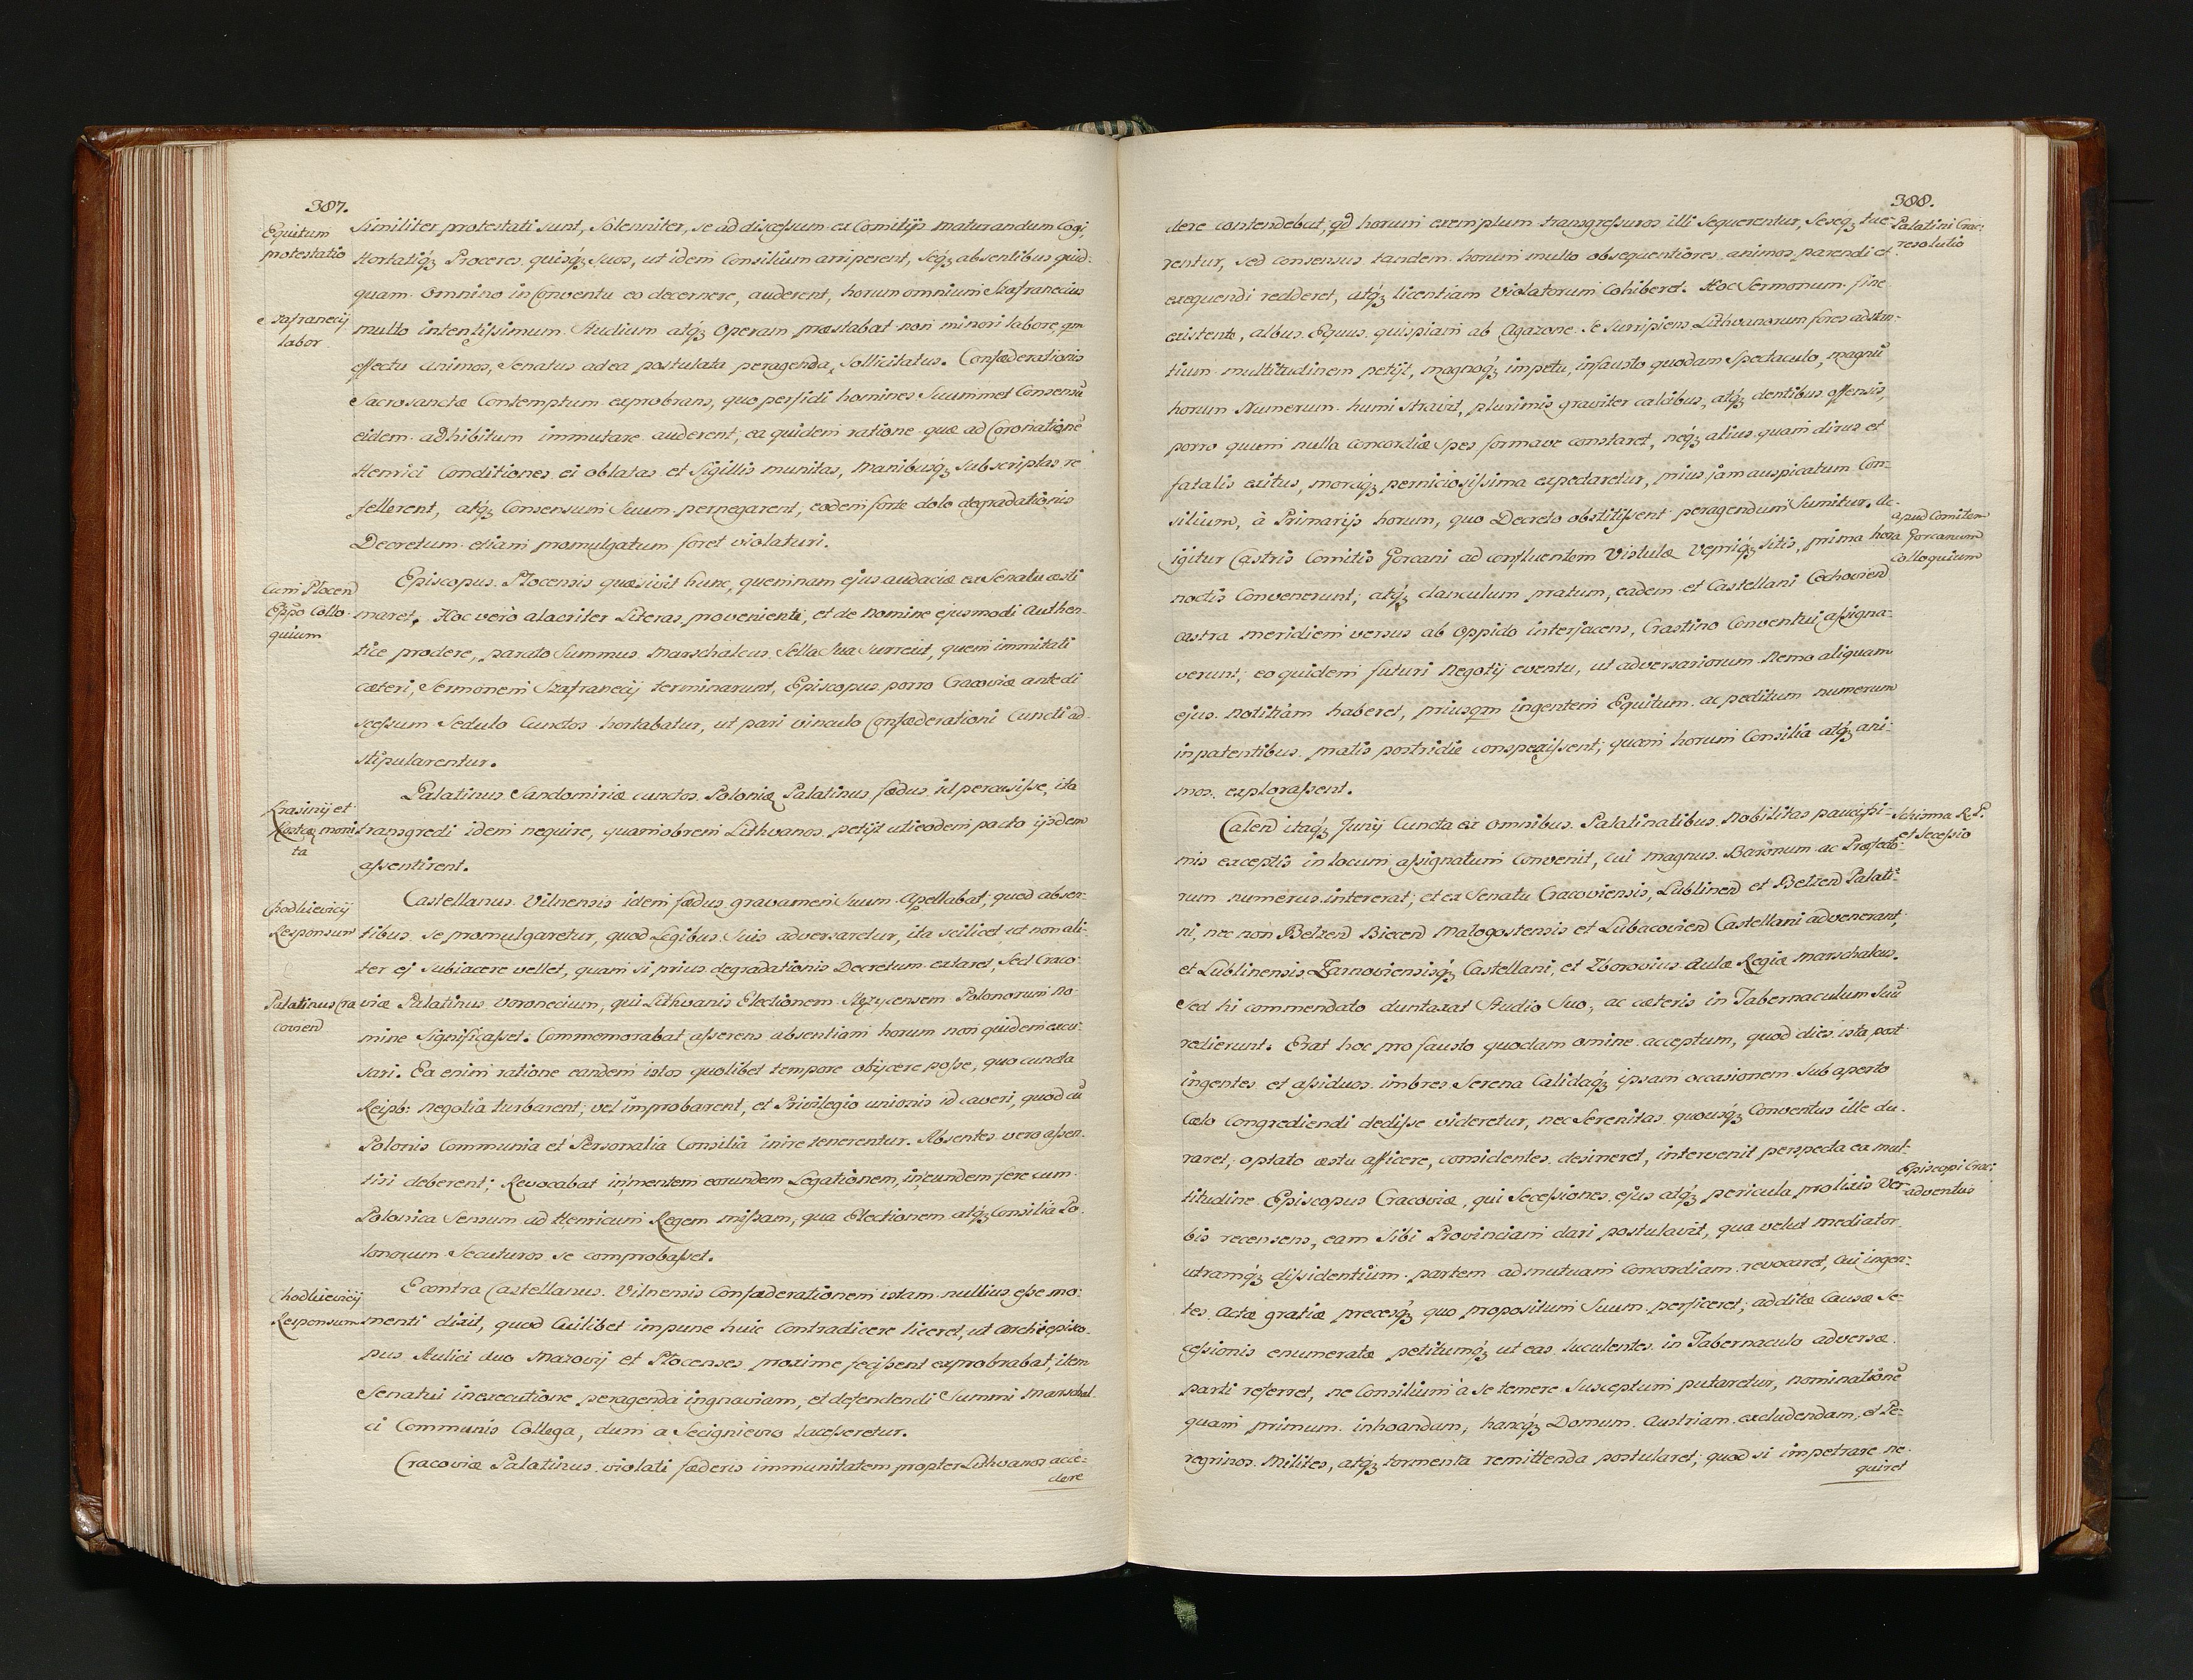 387.
Equitum
protestatio
Similiter protestati sunt, Solenniter, se ad discessum ex Comitijs maturandum Cogi,
Hortatiq́ꝫ Proceres quisq́ꝫ Suos, ut idem Consilium arriperent, Seq́ꝫ absentibus quid-
quam omnino in Conventu eo decernere, auderent, horum omnium Szafranecius
Szafranecij
labor
multo intentissimum Studium atq́ꝫ Operam præstabat non minori labore, qm
effectu animos, Senatus ad ea postulata peragenda, Sollicitatus. Confæderationis
Sacrosanctæ Contemptum exprobrans, quo perfidi homines Suummet Consensũ
eidem adhibitum immutare auderent; ea quidem ratione quæ ad Coronationẽ
Henrici Conditiones ei oblatas et Sigillis munitas, Manibusq́ꝫ Subscriptas re
fellerent, atq́ꝫ Consensum Suum pernegarent, eodem forte dolo degradationis
Decretum etiam promulgatum foret violaturi.
Cum Plocen
Eppo Collo-
quium
Episcopus Plocensis quæsivit hunc, quemnam ejus audaciæ ex Senatu æsti
maret. Hoc verò alacriter Literas provenienti, et de Nomine ejusmodi Authen-
tice prodere, parato Summus Marschalcus Sella Sua Surrexit, quem immitati
cæteri, Sermonem Szafranecij terminarunt, Episcopus porro Cracoviæ ante di
scessum Sedulo Cunctos hortabatur, ut pari vinculo Confæderationi Cuncti ad-
stipularentur.
Krasinij et
Kostæ moni
ta
Palatinus Sandomiriæ cunctos Poloniæ Palatinus fædus id percusisse, ita
transgredi idem nequire, quamobrem Lithvanos petijt uti eodem pacto ijsdem
assentirent.
Chodkievicij
Responsum
Castellanus Vilnensis idem fædus gravamen Suum Apellabat; quod absen-
tibus se promulgaretur, quod Legibus Suis adversaretur, ita scilicet ut non ali-
ter ej subiacere vellet, quam si prius degradationis Decretum extaret, Sed Craco
Palatinus Cra
coviend
viæ Palatinus Voronecium, qui Lithvanis Electionem Polonorum No-
mine Significasset. Commemorabat asserens absentiam horum non quidem excu-
sari. Ea enim ratione eandem istos quolibet tempore obijcere posse, quo cuncta
Reipb: negotia turbarent, vel improbarent, et Privilegio unionis id caveri, quod cũ
Polonis Communia et Personalia Consilia inire tenerentur. Absentes vero assen-
tiri deberent; Revocabat in mentem eorundem Legationem, in eundem fere cum
Polonica Sensum ad Henricum Regem missam, qua Electionem atq́ꝫ Consilia Po-
lonorum Secuturos se comprobasset.
Chodkievicij
Responsum
E contra Castellanus Vilnensis Confæderationem istam nullius esse mo-
menti dixit, quod Cuilibet impune huic Contradicere liceret, ut Archiepisco-
pus Aulici duo Mazovij et Plocenses proxime fecissent exprobrabat, item
Senatui in executione peragenda ingnaviam, et defendendi Summi Marschal-
ci Communis Collega, dum a Secignievio Lacesseretur.
Cracoviæ Palatinus violati fæderis immunitatem propter Lithvanos acce-
dere
388.
dere contendebat, qd horum exemplum transgressuros illi Sequerentur, Seseq́ꝫ tue-
Palatini Crac:
resolutio
rentur, sed consensus tandem horum multo obsequentiores animos parendi et
exequendi redderet, atq́ꝫ licentiam Violatorum Cohiberet. Hoc Sermonum fine
existente, albus Equus quispiam ab Agazone Se Surripiens Lithvanorum fores adstan-
tium multitudinem petijt, magnoq́ꝫ impetu, infausto quodam Spectaculo, magnũ
horum Numerum humi stravit, plurimis graviter calcibus, atq́ꝫ dentibus offensis,
porro quum nulla concordiæ Spes formave constaret, neq́ꝫ alius quam dirus et
fatalis exitus, moraq́ꝫ perniciosissima expectaretur, prius jam auspicatum Con-
silium, à Primarijs horum, quo Decreto obstitissent peragendum Sumitur.
apud Comitem
Gorcanum
Colloquium
igitur Castris Comitis Gorcani ad confluentem Vistulæ Vepriq́ꝫ sitis, prima hora
noctis Convenerunt; atq́ꝫ clanculum pratum, eadem et Castellani Cechoviend
castra meridiem versus ab Oppido interjacens, Crastino Conventui assigna-
verunt; eo quidem futuri Negotij eventu, ut adversariorum Nemo aliquam
ejus notitiam haberet, priusqm ingentem Equitum ac peditum numerum
in patentibus pratis postridie conspexissent; quam horum Consilia atq́ꝫ ani-
mos explorassent.
Calend itaq́ꝫ Junij Cuncta ex omnibus Palatinatibus Nobilitas paucissi-
Schisma R.P.
et Secessio
mis exceptis in locum assignatum convenit, cui magnus Baronum ac Præfecto-
rum numerus intererat; et ex Senatu Cracoviensis, Lublinend et Betzend Palati-
ni, nec non Betzend Biecend Malogostensis et Lubacoviend Castellani advenerant;
et Lublinensis Zarnoviensisq́ꝫ Castellani, et Zborovius Aulæ Regiæ Marschalcus.
Sed hi commendato duntaxat Studio Suo, ac cæteris in Tabernaculum Suũ
redierunt. Erat hoc pro fausto quodam omine acceptum, quod dies ista post
ingentes et assiduos imbres Serena Calidaq́ꝫ ipsam occasionem Sub aperto
Cælo congrediendi dedisse videretur, nec Serenitas quousq́ꝫ Conventus ille du-
raret, optato æstu afficere, considentes desineret, intervenit perspecta ea mul-
Episcopi Crac:
adventus
titudine Episcopus Cracoviæ, qui Secessiones ejus atq́ꝫ pericula prolixis Ver-
bis recensens, eam Sibi Provinciam dari postulavit, qua velut Mediator
utramq́ꝫ dissidentium partem ad mutuam Concordiam revocaret, Cui ingen-
tes Actæ gratiæ precesq́ꝫ quo propositum Suum perficeret; additæ Causæ Se-
cessionis enumeratæ petitumq́ꝫ ut eas luculentes in Tabernaculo adversæ
parti referret, ne Consilium à se temere Susceptum putaretur, nominationẽ
quam primum inhoandam, hancq́ꝫ Domum Austriam excludendam, et Pe-
regrinos Milites, atq́ꝫ tormenta remittenda postularet; quod si impetrare ne-
quiret